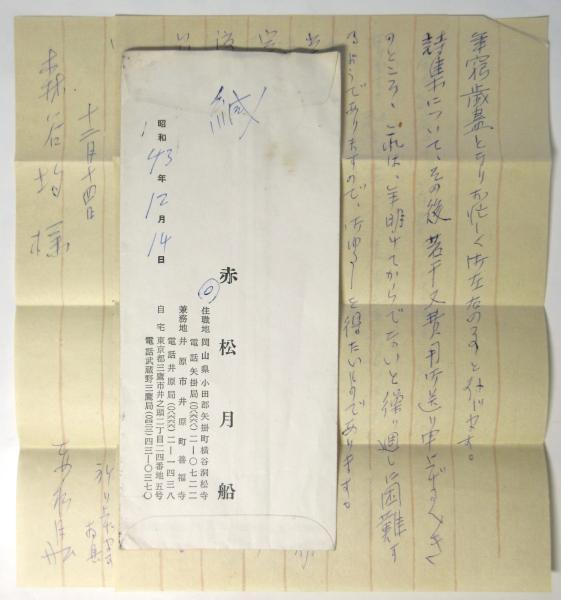 年窮歳暮となりお忙しく御在なさることと存じます。
詩集について、その後若干又費用御送り申上げるべき
のところ、これは、年明けてからでないと繰り廻しに困難す
るようでありますので、御ゆるしを得たいものであります。
緘
昭和43年12月14日
赤松月船
住職地 岡山県小田郡矢掛町横谷洞松寺
電話矢掛局(〇八六六八)二—〇七二二
兼務地 井原市井原町善福寺
電話井原局(〇八六六六)二—一四三八
自宅 東京都三鷹市井之頭二丁目二四番地五号
電話武蔵野三鷹局(〇四二二)四三—〇三七〇
赤松月船
十二月十四日
森谷均様